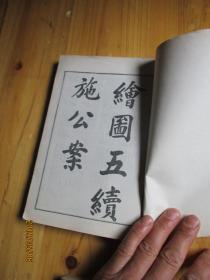 繪圖五續
施公案